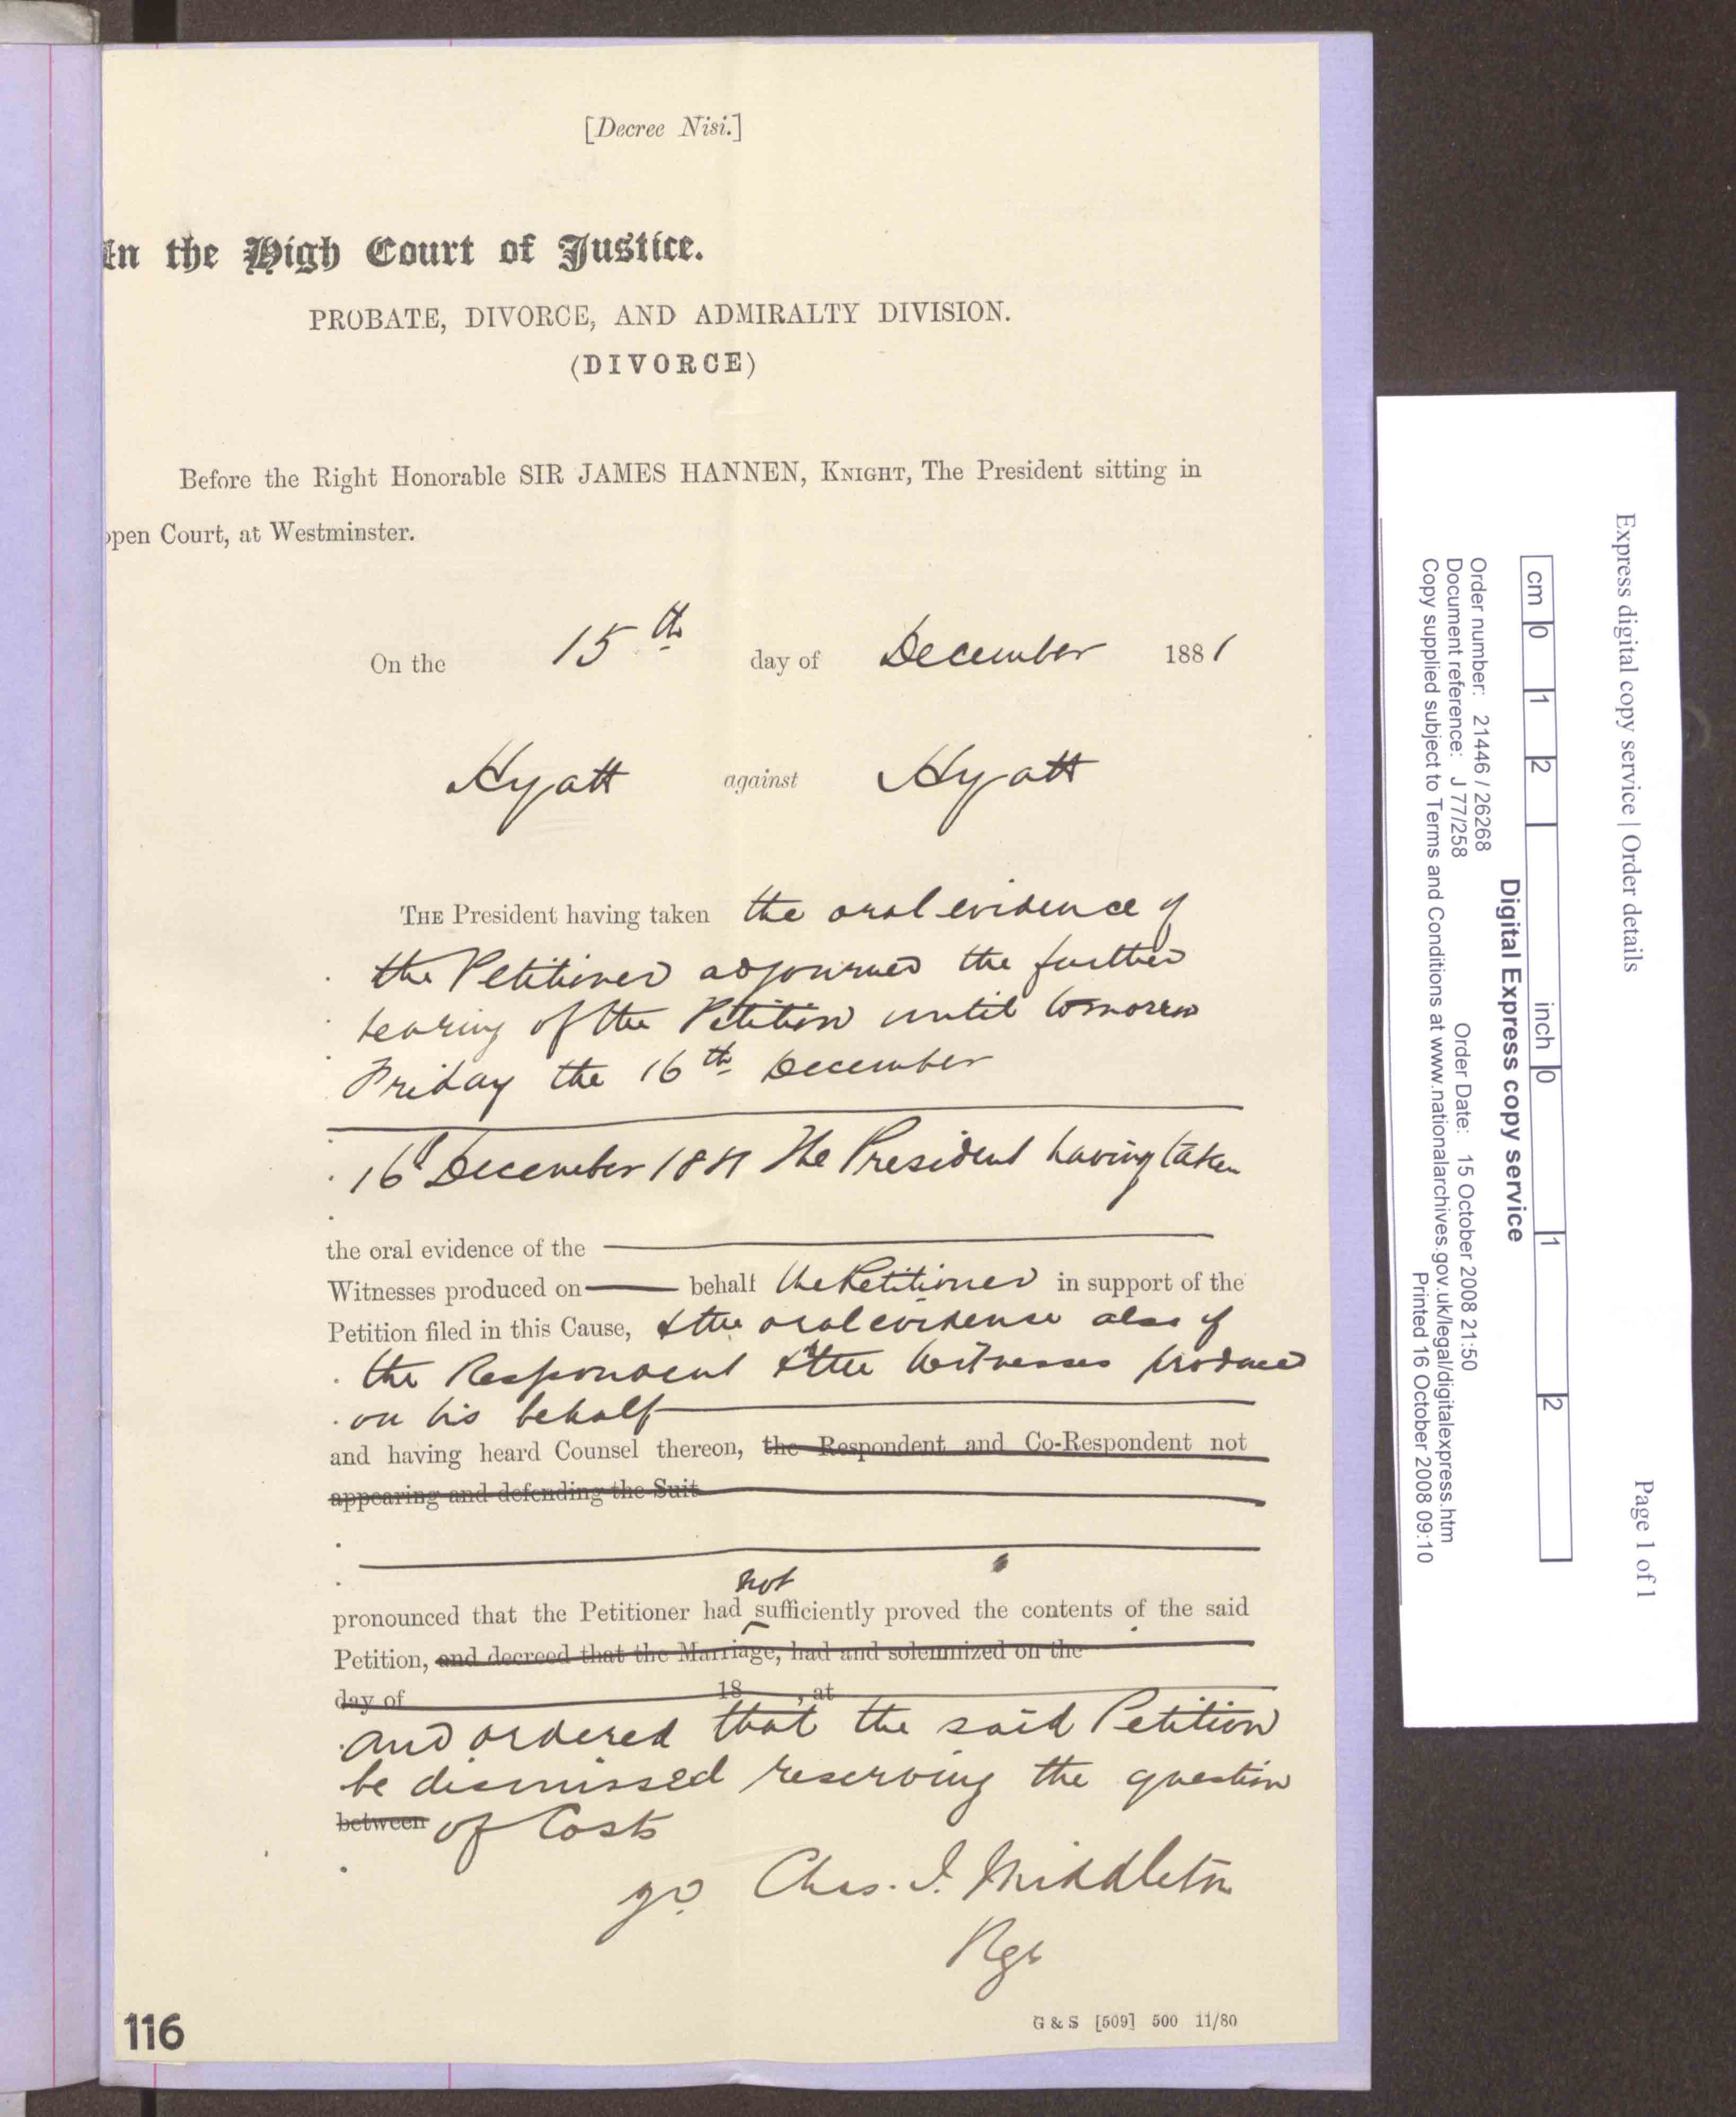 [Decree Nisi.]
In the High Court of Justice.
PROBATE, DIVORCE, AND ADMIRALTY DIVISION.
(DIVORCE)
Before the Right Honorable SIR JAMES HANNEN, KNIGHT, The President sitting in
open Court, at Westminster.
On the 15th day of December 1881
Hyatt against Hyatt
THE President having taken the oral evidence of
the Petitioner adjourned the further
hearing of the Petition until tomorrow
Friday the 16th December
16th December 1881 The President having taken
the oral evidence of the
Witnesses produced on behalf the Petitioner in support of the
Petition filed in this Cause, & the oral evidence also of
the Respondent & the Witnesses produced
on his behalf
and having heard Counsel thereon, the Respondent and Co-Respondent not
appearing and defending the Suit
not
pronounced that the Petitioner had sufficiently proved the contents of the said
Petition, and decreed that the Marriage, had and solemnized on the
day of 18 , at
and ordered that the said Petition
be dismissed reserving the question
between of Costs
Chas. J. Middleton
Rgr
116
G & S [509] 500 11/80
Express digital copy service | Order details
Page 1 of 1
cm 0 1 2
inch 0 1 2
Digital Express copy service
Order number: 21446 / 26268
Order Date: 15 October 2008 21:50
Document reference: J 77/258
Copy supplied subject to Terms and Conditions at www.nationalarchives.gov.uk/legal/digitalexpress.htm
Printed 16 October 2008 09:10